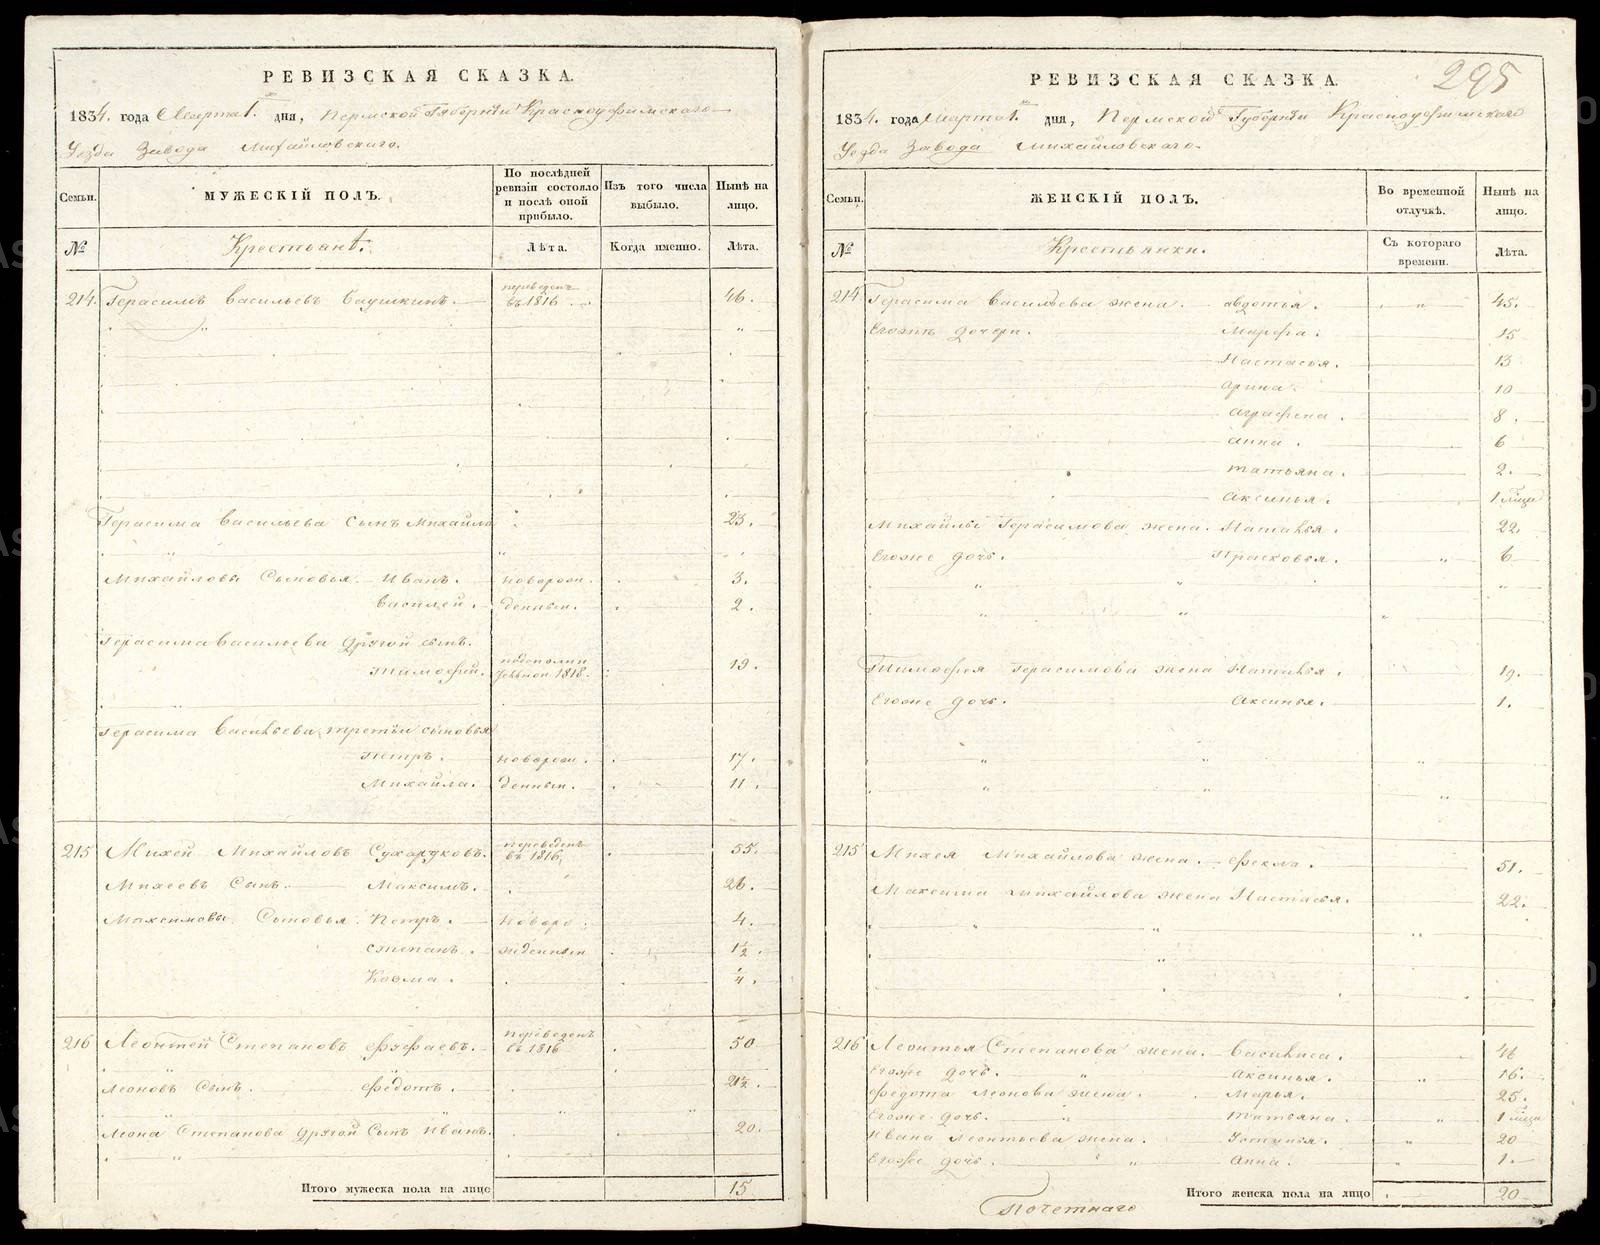 РЕВИЗСКАЯ СКАЗКА.
1834. года Марта 1. дня, Пермской Губернiи Красноуфимскаго
Уезда Завода Михайловскаго.
Семьи. МУЖЕСКІЙ ПОЛЪ. По послѣдней ревизіи состояло и послѣ оной прибыло. Изъ того числа выбыло. Нынѣ на лицо.
№ Крестьянѣ. Лѣта. Когда именно. Лѣта.
214. Герасимъ Васильевъ переведенъ въ 1816 46.
Герасима Васильева Сынъ Михайло 23.
Михайловы Сыновья. Иванъ. новорож. 3.
Василей. денныи. 2.
Герасима Васильева другой сынъ.
Тимофей. 1818. 19.
Герасима Васильева третьи сыновья
Петръ. новорож. 17.
Михайла. денныи. 11.
215 Михей Михайловъ Сухоруковъ. переведенъ въ 1816. 55.
Михеевъ Сынъ. Максимъ. 26.
Максимовы Сыновья. Петръ. Новоро 4.
Степанъ. жденныи 1½
Козма. 4.
216 Леонтей Степановъ переведенъ въ 1816 50
Леоновъ Сынъ. Федотъ. 21½.
Леона Степанова другой Сынъ Иванъ. 20.
Итого мужеска пола на лицо 15
РЕВИЗСКАЯ СКАЗКА. 295
1834. года Марта 1. дня, Пермской Губернiи Красноуфимскаго
Уезда Завода Михайловскаго.
Семьи. ЖЕНСКІЙ ПОЛЪ. Во временной отлучкѣ. Нынѣ на лицо.
№ Крестьянки. Съ котораго времени. Лѣта.
214 Герасима Васильева жена. Авдотья. 45.
Егожъ дочери. Марфа. 15
Настасья. 13
Арина. 10
Аграфена. 8.
Анна. 6
Татьяна. 2.
Аксинья. 1
Михайлы Герасимова жена. Наталья. 22.
Егоже дочь. Прасковья. 6
Тимофея Герасимова жена Наталья. 19.
Егоже дочь. Аксинья. 1.
215 Михея Михайлова жена. Фекла. 51.
Максима Михайлова жена Настасья. 22.
216 Леонтья Степанова жена. Василиса. 46
Егоже дочь. Аксинья. 16.
Федота Леонова жена. Марья. 25.
Егоже дочь. Татьяна. 1
Ивана Леонтьева жена. Устинья. 20
Егоже дочь. Анна. 1.
Итого женска пола на лицо 20
Почетнаго